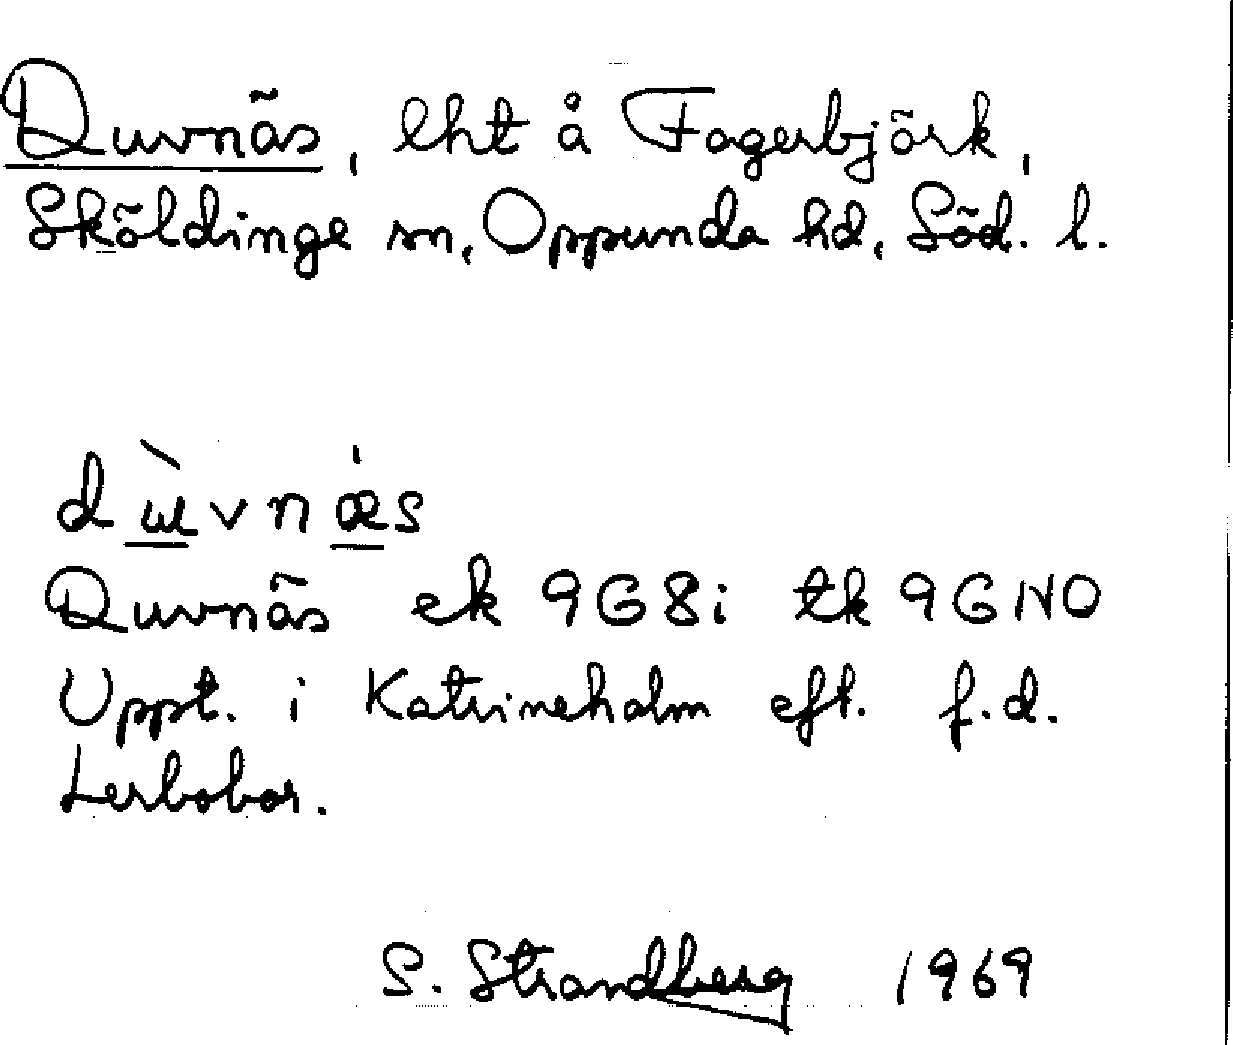 Duvnäs, lht å Fagerbjörk,
Sköldinge sn, Oppunda hd, Söd. l.
dɯ̀vnǽs
Duvnäs ek 9G8i tk 9GNO
Uppt. i Katrineholm eft. f.d.
Lerbobor.
S. Strandberg 1969